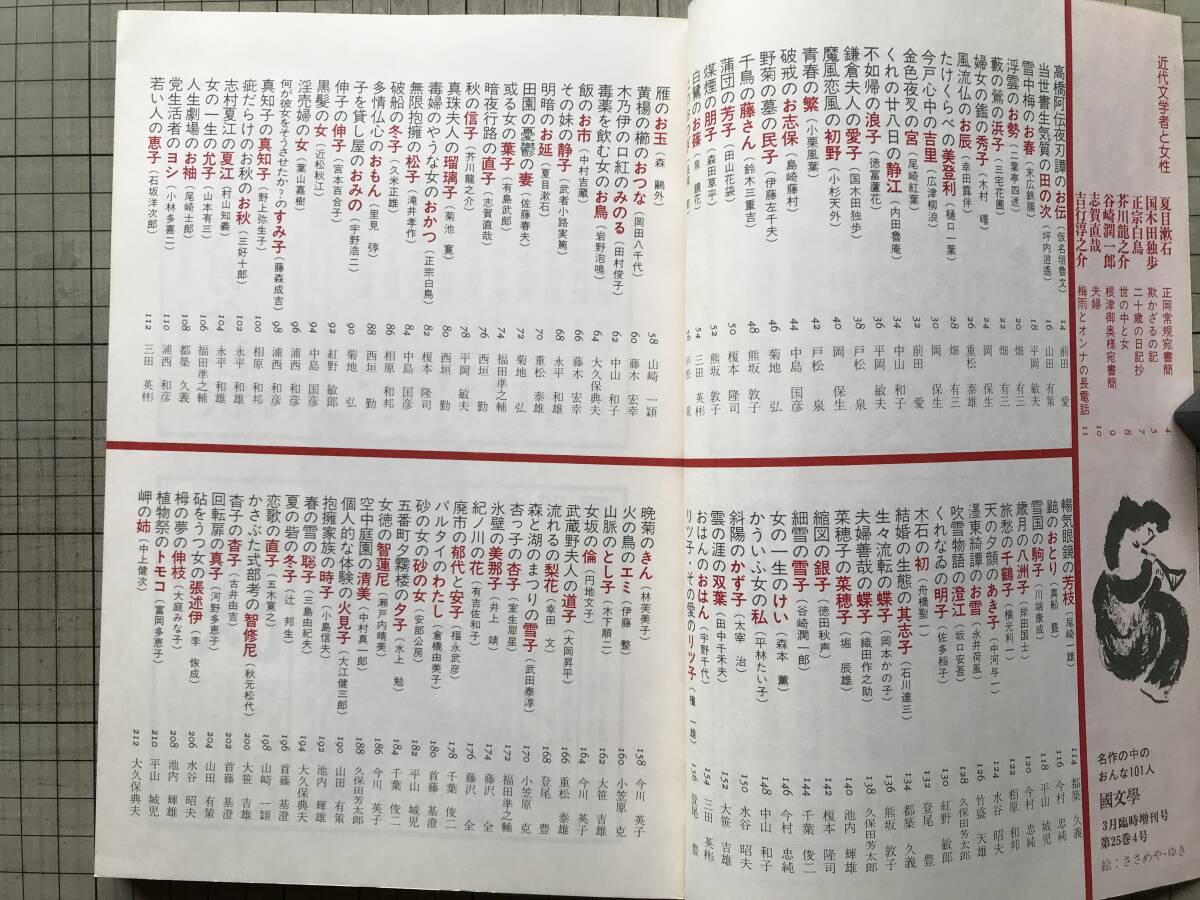 近代文学者と女性
夏目漱石 正岡常規宛書簡 4
国木田独歩 欺かざるの記 5
正宗白鳥 二十歳の日記抄 7
芥川龍之介 世の中と女 8
谷崎潤一郎 根津御奥様宛書簡 9
志賀直哉 夫婦 10
吉行淳之介 梅雨とオンナの長電話 11
名作の中の
おんな101人
國文學
3月臨時増刊号
第25巻4号
絵:ささめや・ゆき
高橋阿伝夜刃譚のお伝(仮名垣魯文) 14 前田 愛
当世書生気質の田の次(坪内逍遙) 16 山田 有策
雪中梅のお春(末広鉄腸) 18 平岡 敏夫
浮雲のお勢(二葉亭四迷) 20 畑 有三
藪の鶯の浜子(三宅花圃) 22
婦女の鑑の秀子(木村 曙) 24 岡 保生
風流仏のお辰(幸田露伴) 26
たけくらべの美登利(樋口一葉) 28 畑 有三
今戸心中の吉里(広津柳浪) 30 岡 保生
金色夜叉の宮(尾崎紅葉) 32 前田 愛
くれの廿八日の静江(内田魯庵) 34 中山 和子
不如帰の浪子(徳冨蘆花) 36 平岡 敏夫
鎌倉夫人の愛子(国木田独歩) 38 戸松 泉
魔風恋風の初野(小杉天外) 40 岡 保生
青春の繁(小栗風葉) 42 戸松 泉
破戒のお志保(島崎藤村) 44 中島 国彦
野菊の墓の民子(伊藤左千夫) 46 菊地 弘
千鳥の藤さん(鈴木三重吉) 48 熊坂 敦子
蒲団の芳子(田山花袋) 50 榎本 隆司
煤煙の朋子(森田草平) 52 熊坂 敦子
白鷺のお篠(泉 鏡花) 54 三田 英彬
雁のお玉(森 鷗外) 58 山崎 一穎
黄楊の櫛のおつな(岡田八千代) 60 藤木 宏幸
木乃伊の口紅のみのる(田村俊子) 62 中山 和子
毒薬を飲む女のお鳥(岩野泡鳴) 64 大久保典夫
飯のお市(中村吉蔵) 66 藤木 宏幸
その妹の静子(武者小路実篤) 68 永平 和雄
明暗のお延(夏目漱石) 70 重松 泰雄
田園の憂鬱の妻(佐藤春夫) 72 菊地 弘
或る女の葉子(有島武郎) 74 福田準之輔
秋の信子(芥川龍之介) 76 西垣 勤
暗夜行路の直子(志賀直哉) 78 平岡 敏夫
真珠夫人の瑠璃子(菊池 寛) 80 西垣 勤
無限抱擁の松子(滝井孝作) 82 榎本 隆司
毒婦のやうな女のおかつ(正宗白鳥) 84 中島 国彦
破船の冬子(久米正雄) 86 相原 和邦
多情仏心のおもん(里見 弴) 88 西垣 勤
子を貸し屋のおみの(宇野浩二) 90 菊地 弘
伸子の伸子(宮本百合子) 92 紅野 敏郎
黒髪の女(近松秋江) 94 中島 国彦
淫売婦の女(葉山嘉樹) 96 浦西 和彦
何が彼女をそうさせたか?のすみ子(藤森成吉) 98 浦西 和彦
真知子の真知子(野上弥生子) 100 相原 和邦
疵だらけのお秋のお秋(三好十郎) 102 永平 和雄
志村夏江の夏江(村山知義) 104 永平 和雄
女の一生の允子(山本有三) 106 福田準之輔
人生劇場のお袖(尾崎士郎) 108 都築 久義
党生活者のヨシ(小林多喜二) 110 浦西 和彦
若い人の恵子(石坂洋次郎) 112 三田 英彬
暢気眼鏡の芳枝(尾崎一雄) 114 都築 久義
鼬のおとり(真船 豊) 116 今村 忠純
雪国の駒子(川端康成) 118 平山 城児
歳月の八洲子(岸田国士) 120 今村 忠純
旅愁の千鶴子(横光利一) 122 相原 和邦
天の夕顔のあき子(中河与一) 124 水谷 昭夫
濹東綺譚のお雪(永井荷風) 126 竹盛 天雄
吹雪物語の澄江(坂口安吾) 128 久保田芳太郎
くれなゐの明子(佐多稲子) 130 紅野 敏郎
木石の初(舟橋聖一) 132 登尾 豊
結婚の生態の其志子(石川達三) 134 都築 久義
生々流転の蝶子(岡本かの子) 136 熊坂 敦子
夫婦善哉の蝶子(織田作之助) 138 久保田芳太郎
菜穂子の菜穂子(堀 辰雄) 140 池内 輝雄
縮図の銀子(徳田秋声) 142 榎本 隆司
細雪の雪子(谷崎潤一郎) 144 千葉 俊二
女の一生のけい(森本 薫) 146 今村 忠純
かういふ女の私(平林たい子) 148 中山 和子
斜陽のかず子(太宰 治) 150 水谷 昭夫
雲の涯の双葉(田中千禾夫) 152 大笹 吉雄
おはんのおはん(宇野千代) 154 三田 英彬
リツ子・その愛のリツ子(檀 一雄) 156 登尾 豊
晩菊のきん(林芙美子) 158 今川 英子
火の鳥のエミ(伊藤 整) 160 小笠原 克
山脈のとし子(木下順二) 162 大笹 吉雄
女坂の倫(円地文子) 164 今川 英子
武蔵野夫人の道子(大岡昇平) 166 重松 泰雄
流れるの梨花(幸田 文) 168 登尾 豊
森と湖のまつりの雪子(武田泰淳) 170 小笠原 克
杏っ子の杏子(室生犀星) 172 福田準之輔
氷壁の美那子(井上 靖) 174 藤沢 全
紀ノ川の花(有吉佐和子) 176 藤沢 全
廃市の郁代と安子(福永武彦) 178 千葉 俊二
パルタイのわたし(倉橋由美子) 180 首藤 基澄
砂の女の砂の女(安部公房) 182 平山 城児
五番町夕霧楼の夕子(水上 勉) 184 千葉 俊二
女徳の智蓮尼(瀬戸内晴美) 186 今川 英子
空中庭園の清美(中村真一郎) 188 久保田芳太郎
個人的な体験の火見子(大江健三郎) 190 山田 有策
抱擁家族の時子(小島信夫) 192 池内 輝雄
春の雪の聡子(三島由紀夫) 194 大久保典夫
夏の砦の冬子(辻 邦生) 196 首藤 基澄
恋歌の直子(五木寛之) 198 山崎 一穎
かさぶた式部考の智修尼(秋元松代) 200 大笹 吉雄
杳子の杳子(古井由吉) 202 首藤 基澄
回転扉の真子(河野多恵子) 204 山田 有策
砧をうつ女の張述伊(李 恢成) 206 水谷 昭夫
栂の夢の伸枝(大庭みな子) 208 池内 輝雄
植物祭のトモコ(富岡多恵子) 210 平山 城児
岬の姉(中上健次) 212 大久保典夫